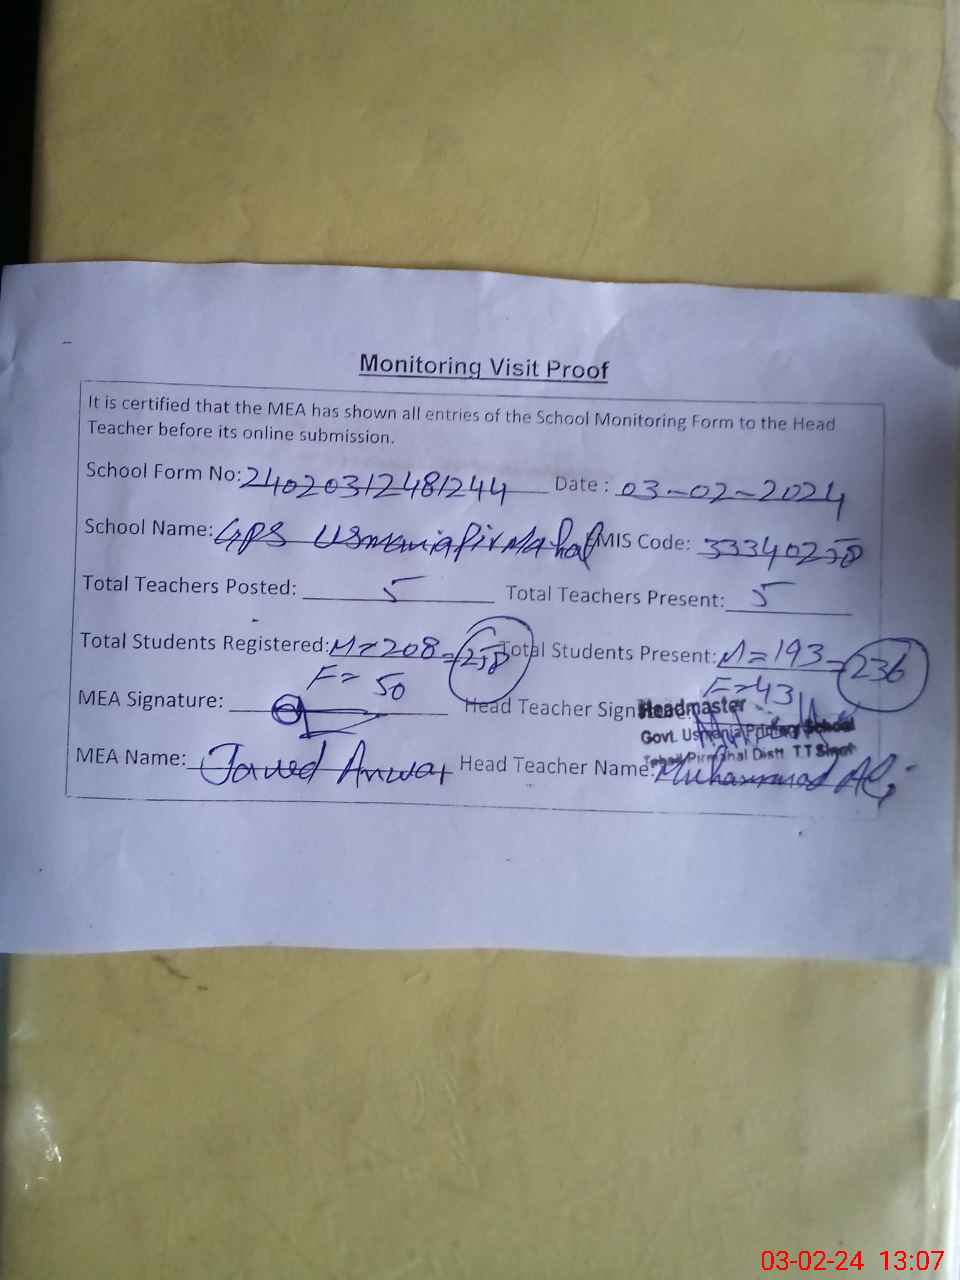 Monitoring Visit Proof
It is certified that the MEA has shown all entries of the School Monitoring Form to the Head
Teacher before its online submission.
School Form No: 24020312481244 Date : 03-02-2024
School Name: GPS Usmania Pir Mahal EMIS Code: 33340258
Total Teachers Posted: 5 Total Teachers Present: 5
Total Students Registered: M=208=258 Total Students Present: M=193=236
F=50 F=43
MEA Signature: Head Teacher Signature:
Headmaster
Govt. Usmania Primary School
Tehsil Pirmahal Distt. T.T Singh
MEA Name: Javed Anwar Head Teacher Name: Muhammad Ali
03-02-24 13:07